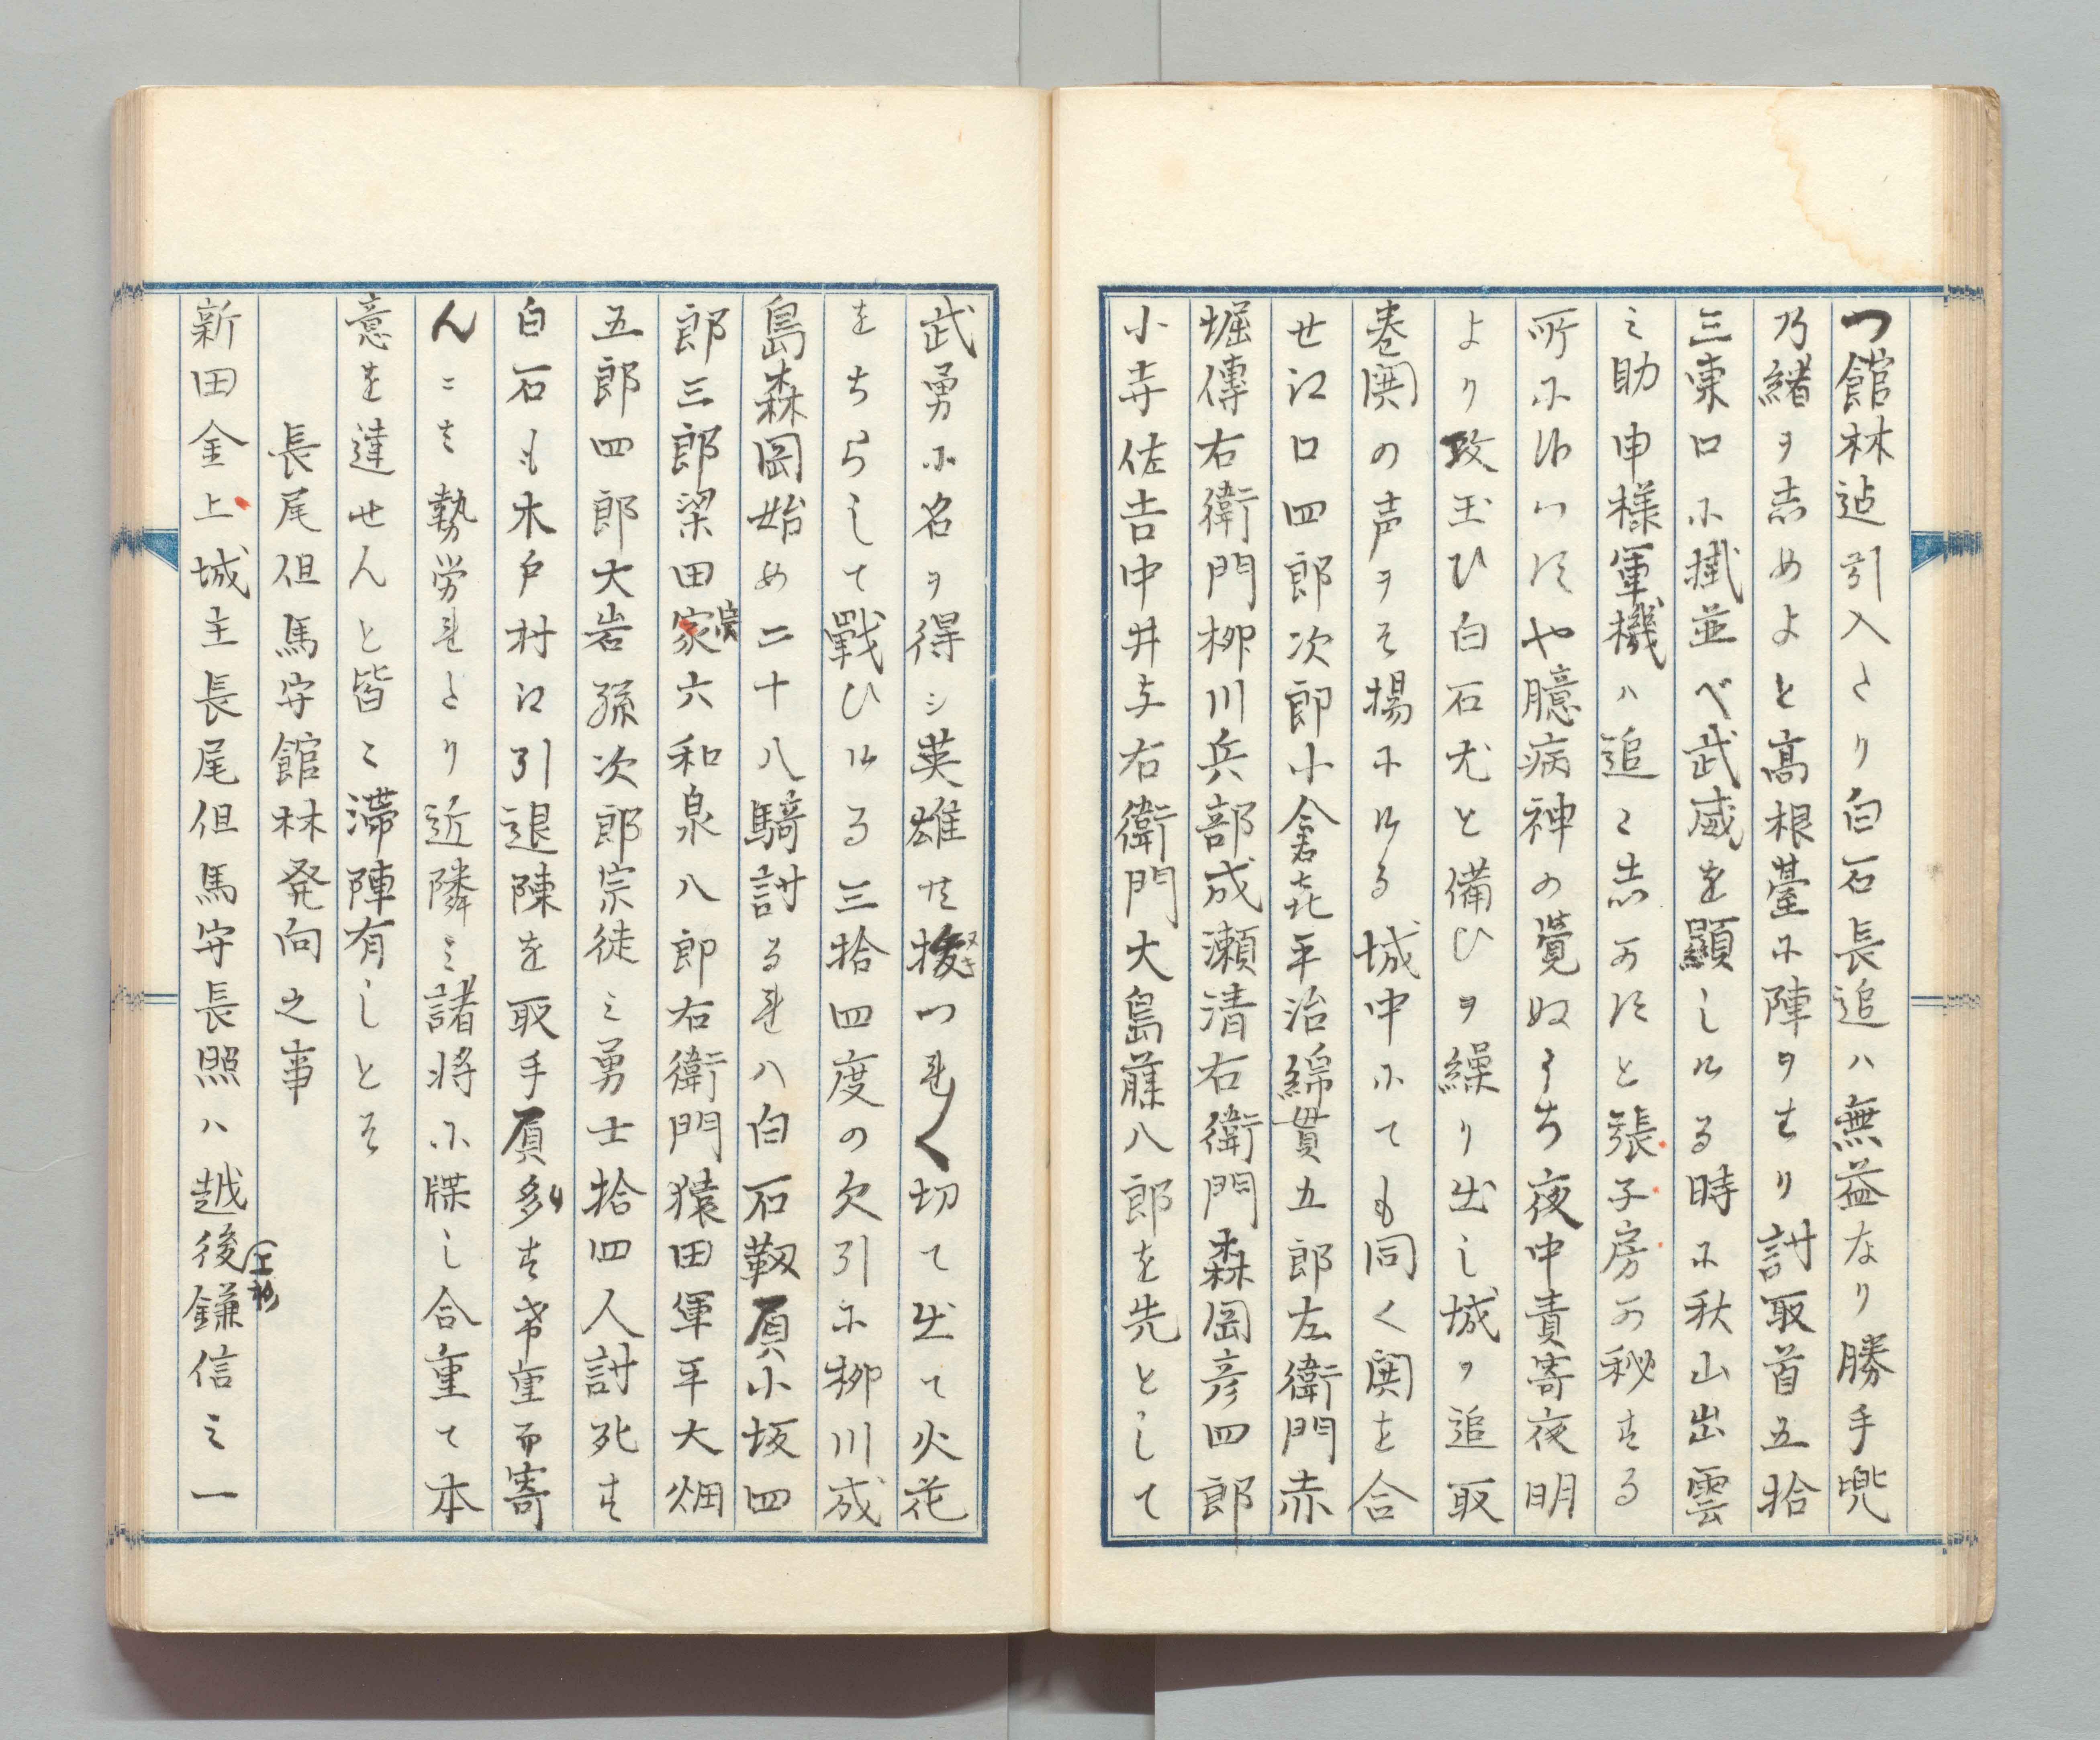 つ館林迠引入たり白石長追ハ無益なり勝手兜
乃緒ヲ志めよと髙根臺小陣ヲせり討取首五拾
三東口小掛並べ武威を顕しける時小秋山出雲
之助申様軍機ハ追々志可たと張子房可秘する
所小や臆病神の覚ぬうち夜中責寄夜明
より攻玉ひ白石尤と備ひヲ繰り出し城ヲ追取
巻関の声ヲそ揚小ける城中小ても同く関を合
せ江口四郎次郎小倉㐂平治綿貫五郎左衛門赤
堀傳右衛門柳川兵部成瀬清右衛門森岡彦四郎
小寺佐吉中井与右衛門大島藤八郎を先として
武勇小名ヲ得シ英雄共抜つれ〳〵切て出て火花
をちらして戰ひける三拾四度の欠引小柳川成
島森岡始め二十八騎討るれハ白石靱屓小坂四
郎三郎梁田家六和泉八郎右衛門猿田軍平大畑
五郎四郎大岩孫次郎宗徒之勇士拾四人討死す
白石も木戸村江引退陳を取手屓多す幸重而寄
んニを勢労れたり近隣之諸将小牒し合重て本
意を達せんと皆々滞陣有しとそ
長尾但馬守館林発向之事
新田金上城主長尾但馬守長照ハ越後鎌信之一
(上杉)